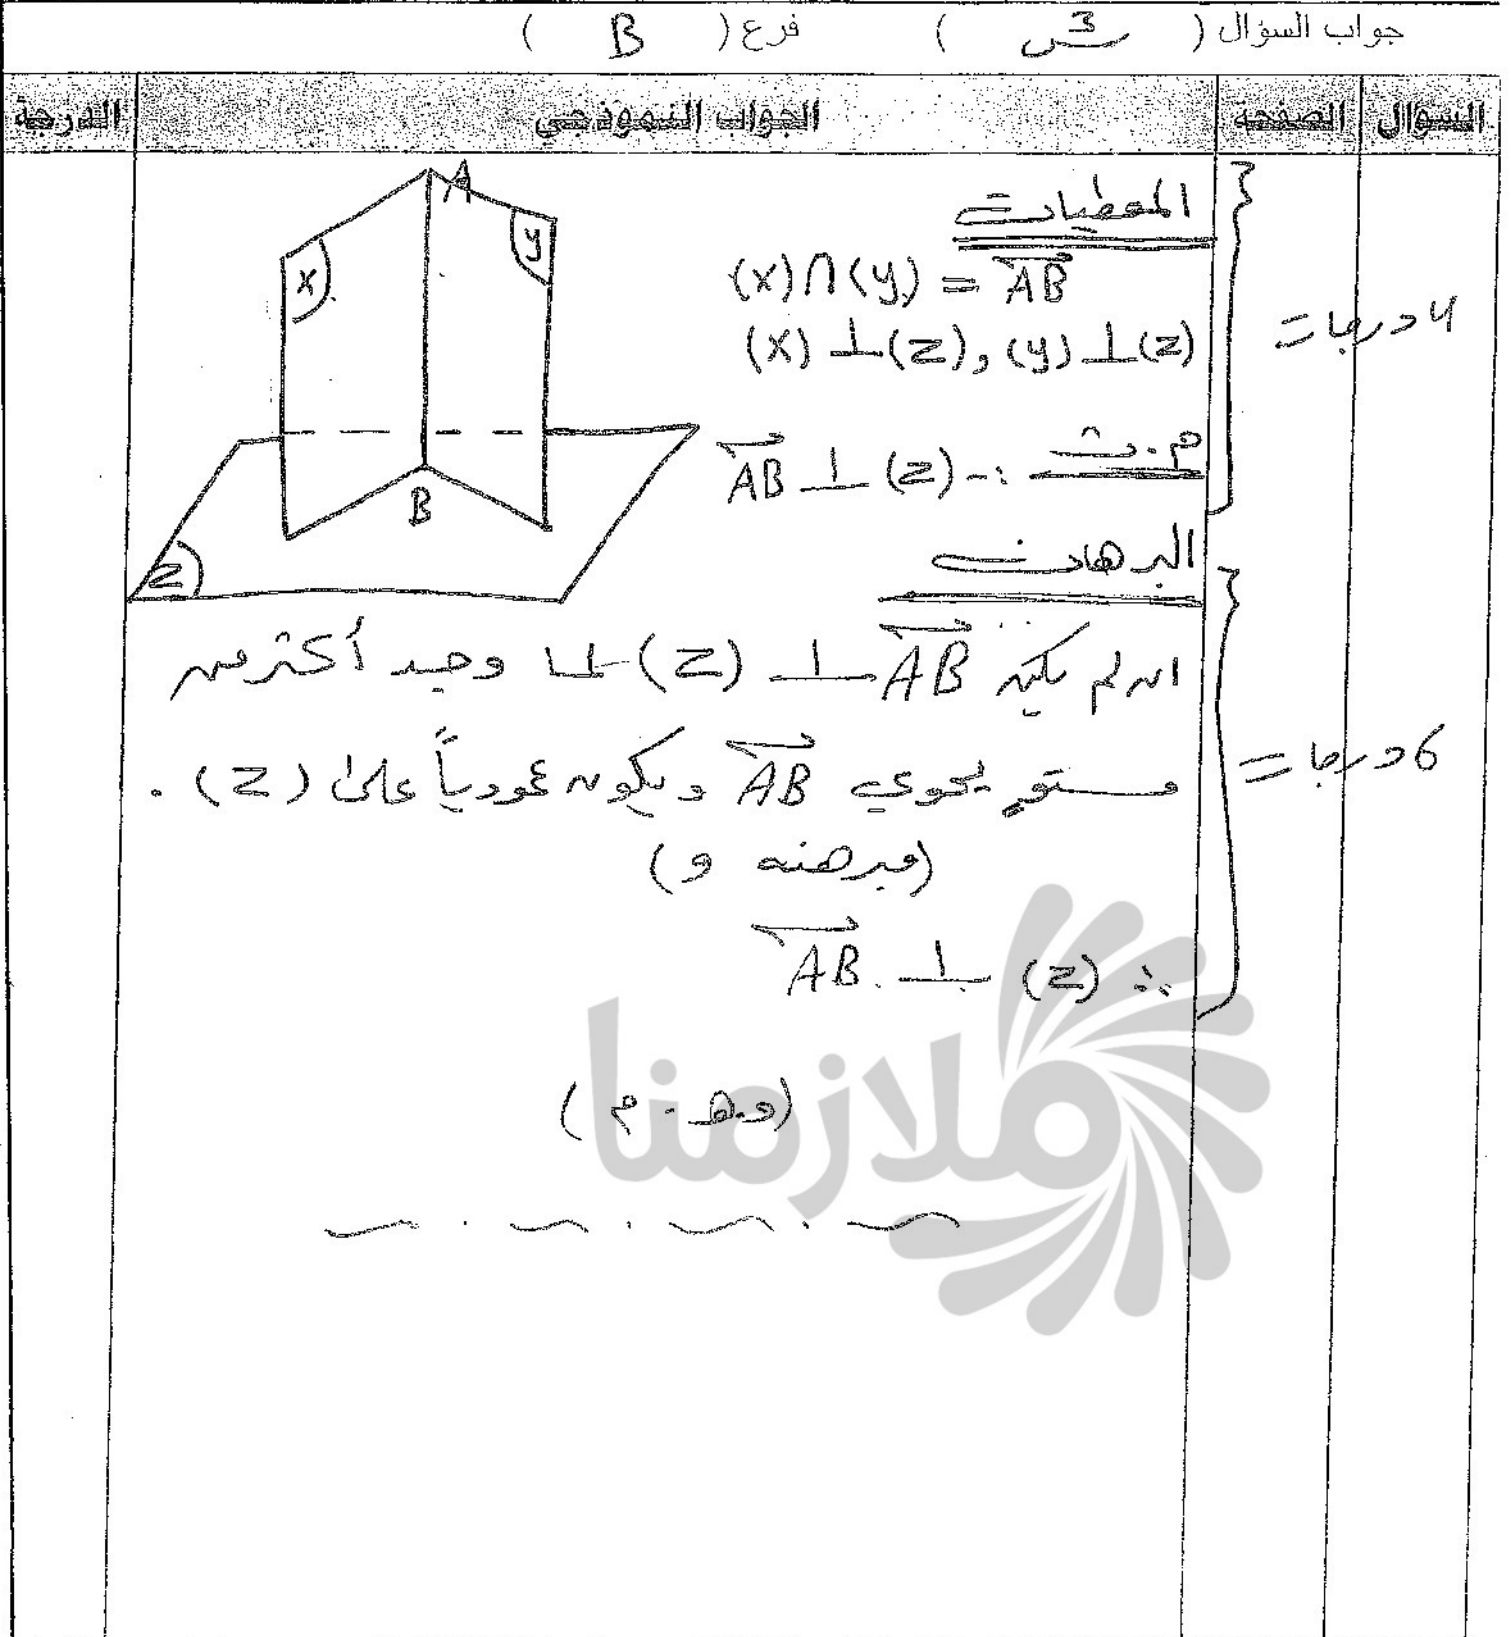 جواب السؤال ( س3 ) فرع ( B )
السؤال الصفحة الجواب النموذجي الدرجة
المعطيات
(x)∩(y) = AB
(x)⊥(z), (y)⊥(z)
4 درجات
م.ث :- AB ⊥ (z)
A
x
y
B
z
البرهان
ان لم يكن AB ⊥ (z) لما وجد أكثر من
مستوٍ يحوي AB ويكون عمودياً على (z) .
6 درجات
(مبرهنه و)
∴ AB ⊥ (z)
(و.هـ.م)
ملازمنا